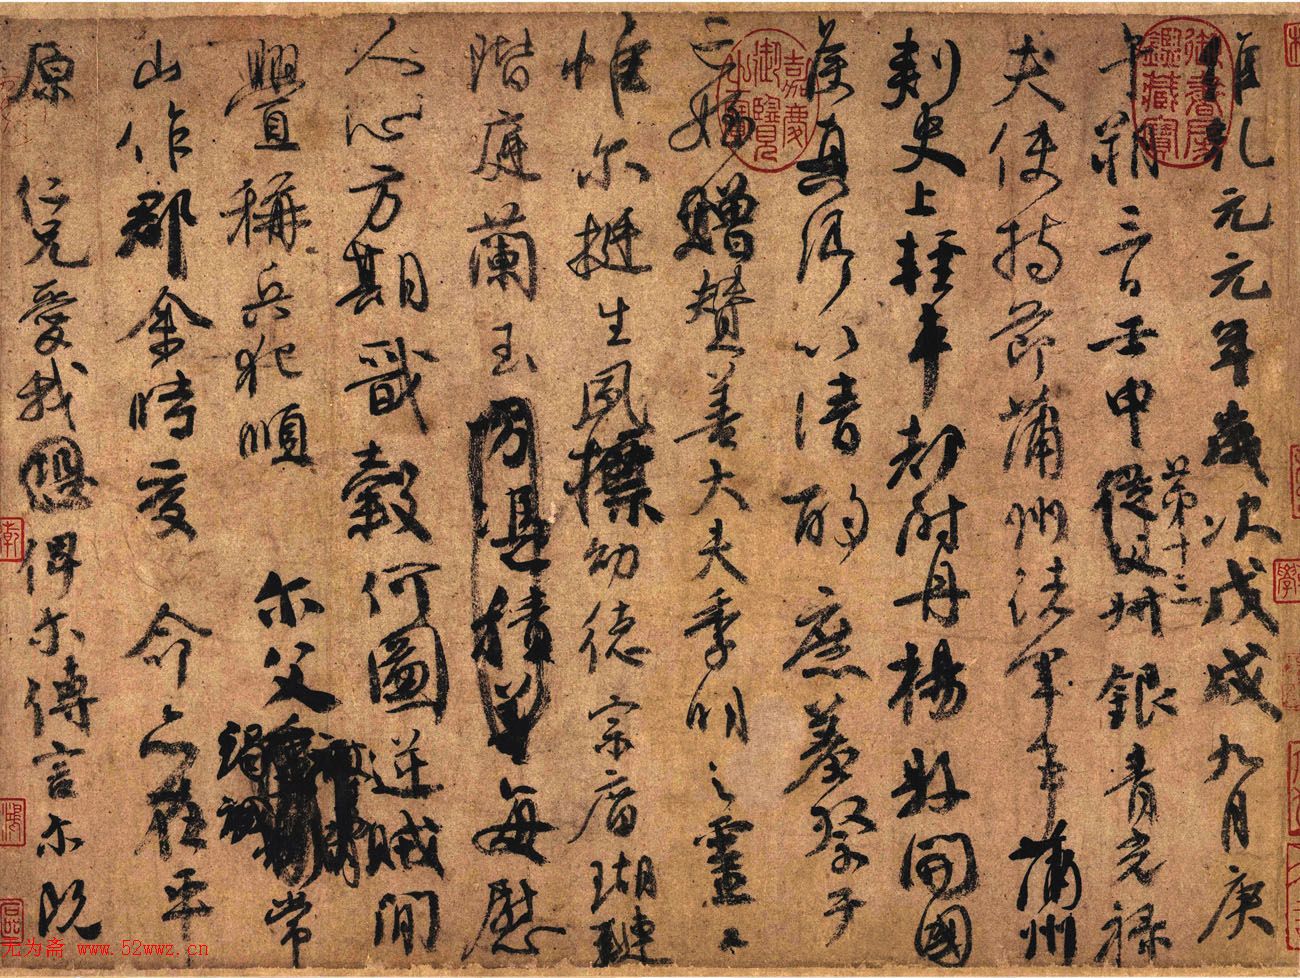 維乾元元年歲次戊戌九月庚
午朔三日壬申從父第十三叔銀青光祿
夫使持節蒲州諸軍事蒲州
刺史上輕車都尉丹楊縣開國
侯真卿以清酌庶羞祭于
亡姪贈贊善大夫季明之靈曰
惟尔挺生夙標幼德宗廟瑚璉
階庭蘭玉方憑積善每慰
人心方期戩穀何圖逆賊間
釁稱兵犯順尔父竭誠常
山作郡余時受命亦在平
原仁兄愛我恐俾尔傳言尔既
御書房鑒藏寶
嘉慶御覽之寶
无为斋 www.52wwz.cn